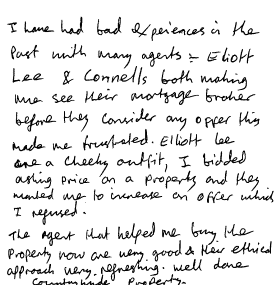 I have had bad experiences in the
Past with many agents :- Eliott
Lee & Connells both making
me see their mortgage broker
before they consider any offer this
made me frustrated. Elliott Lee
are a Cheeky outfit, I bidded
asking price on a property and they
wanted me to increase an offer which
I refused.
The agent that helped me buy the
Property now are very good & their ethical
approach very refreshing. well done
Countrywide Property.